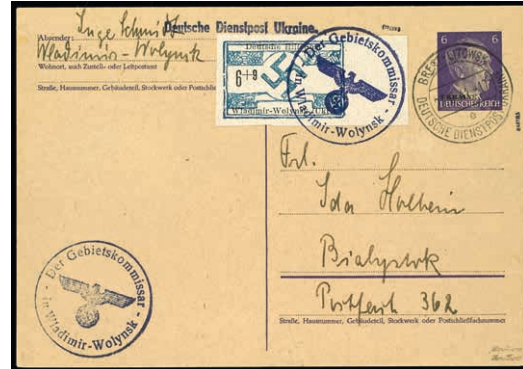 Deutsche Dienstpost Ukraine.
Absender: Inge Schmidt
Wladimir-Wolynsk
Wohnort, auch Zustell- oder Leitpostamt
Straße, Hausnummer, Gebäudeteil, Stockwerk oder Postschließf
6+9
Wladimir-Wolynsk
Der Gebietskommissar
in Wladimir-Wolynsk
6 6
DEUTSCHES REICH
BREST LITOWSK
DEUTSCHE DIENSTPOST
Frl.
Ida Holbein
Bialystok
Postfach 362
Straße, Hausnummer, Gebäudeteil, Stockwerk oder Postschließfachnummer
Der Gebietskommissar
in Wladimir-Wolynsk